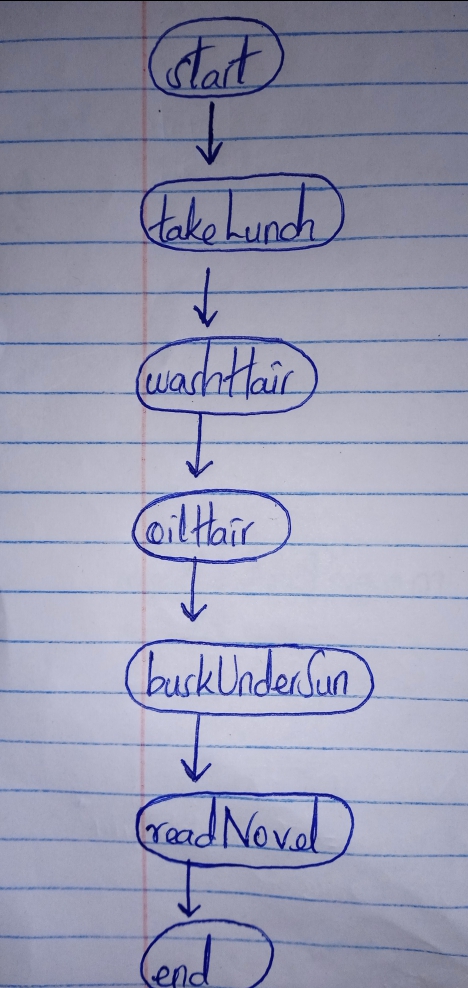 start
takeLunch
washHair
oilHair
buskUnderSun
readNovel
end